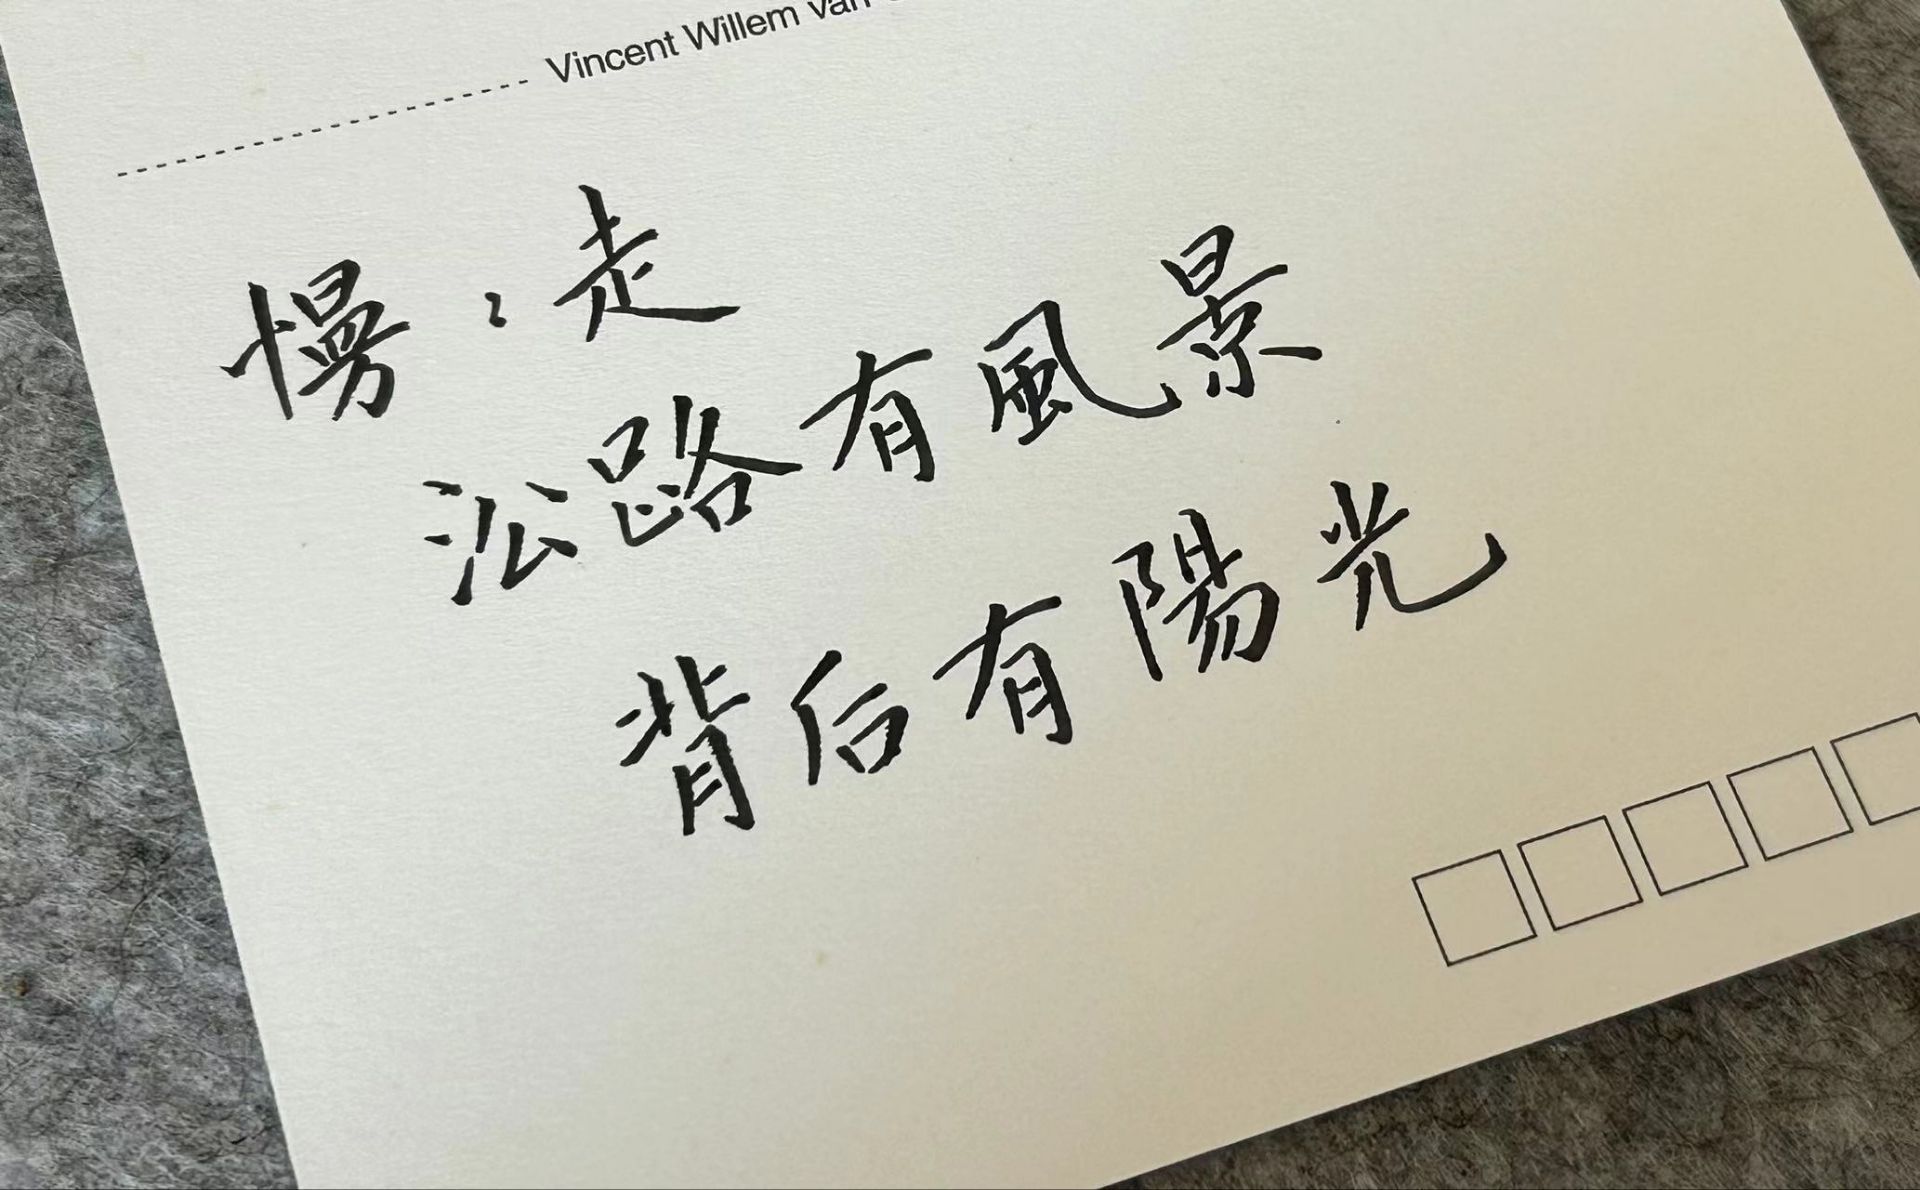 Vincent Willem van
慢〻走
沿路有風景
背后有陽光